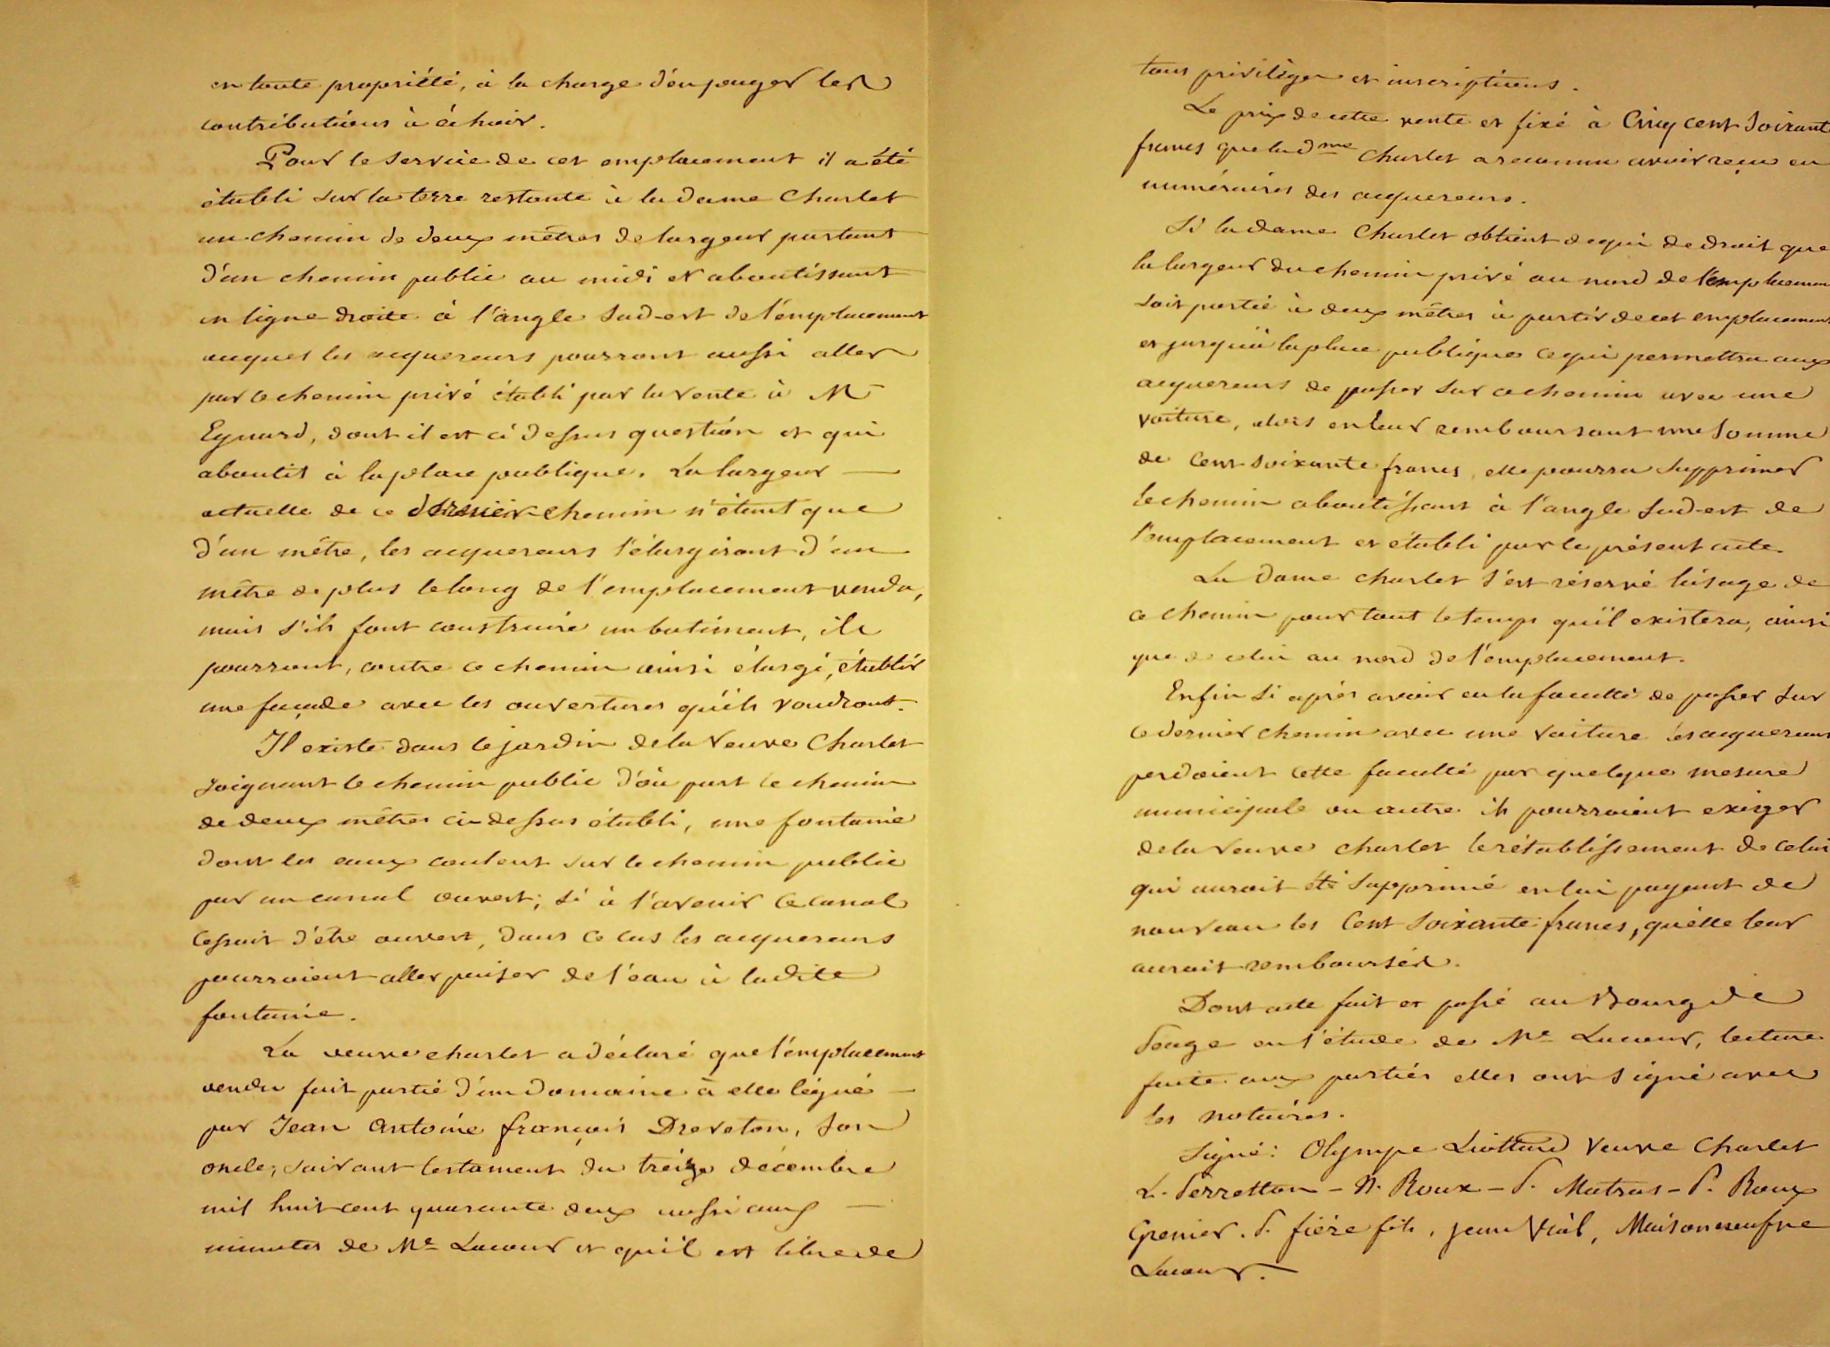 en toute propriété, à la charge d'en payer les
contributions à échoir.
Pour le service de cet emplacement il a été
établi sur la terre restante à la dame Charlet
un chemin de deux mètres de largeur partant
d'un chemin public au midi et aboutissant
en ligne droite à l'angle Sud-est de l'emplacement
auquel les acquereurs pourront aussi aller
par le chemin privé établi par la vente à M
Eynard, dont il est ci dessus question et qui
aboutit à la place publique. La largeur
actuelle de ce dernier chemin n'étant que
d'un mètre, les acquereurs l'élargiront d'un
mètre de plus le long de l'emplacement vendu,
mais s'ils font construire un batiment, ils
pourront, contre ce chemin ainsi élargi, établir
une façade avec les ouvertures qu'ils voudront.
Il existe dans le jardin de la Veuve Charlet
joignant le chemin public d'où part le chemin
de deux mètres ci-dessus établi, une fontaine
dont les eaux coulent sur le chemin public
par un canal ouvert; si à l'avenir ce canal
cessait d'être ouvert, dans ce cas les acquereurs
pourraient aller puiser de l'eau à ladite
fontaine.
La veuve charlet a déclaré que l'emplacement
vendu fait partie d'un domaine à elle légué
par Jean Antoine françois Dreveton, son
oncle, suivant testament du treize décembre
mil huit cent quarante deux aussi aux
minutes de Me Lacour et qu'il est libre de
tous privilèges et inscriptions.
Le prix de cette vente et fixé à Cinq cent Soixante
francs que lad me Charlet a reconnu avoir reçu en
numéraires des acquereurs.
Si la dame Charlet obtient de qui de droit que
la largeur du chemin privé au nord de l'emplacement
soit portée à deux mètres à partir de cet emplacement
et jusqu'à la place publique ce qui permettra aux
acquereurs de passer sur ce chemin avec une
voiture, alors en leur remboursant une somme
de Cent soixante francs, elle pourra supprimer
le chemin aboutissant à l'angle Sud-est de
l'emplacement et établi par le présent acte.
La dame charlet s'est réservé l'usage de
ce chemin pour tout le temps qu'il existera, ainsi
que de celui au nord de l'emplacement.
Enfin si après avoir eu la faculté de passer sur
ce dernier chemin avec une voiture les acquereurs
perdoient cette faculté par quelque mesure
municipale ou autre ils pourroient exiger
de la Veuve charlet le rétablissement de celui
qui auroit été supprimé en lui payant de
nouveau les Cent soixante francs, qu'elle leur
auroit remboursés.
Dont acte fait et passé au Bourg de
Péage en l'étude de Me Lacour, lecture
faite aux parties elles ont signé avec
les notaires.
Signé: Olympe Liottard Veuve Charlet
L. Perretton - N. Roux - P. Matras - P. Roux
Grenier. P. fière fils, jean Vial, Maisonneufve
Lacour.